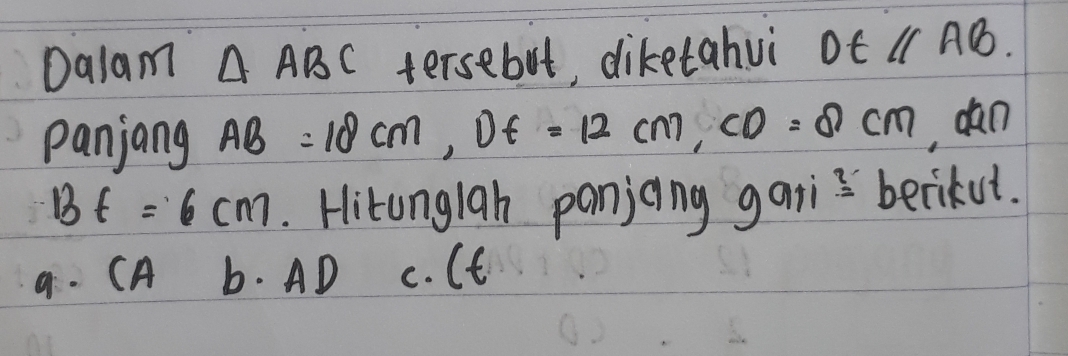 Dalam Δ ABC tersebut, diketahui DE // AB.
panjang AB = 18 cm, DE = 12 cm, CD = 8 cm, dan
BE = 6 cm. Hitunglah panjang garis² berikut.
a. CA b. AD c. CE